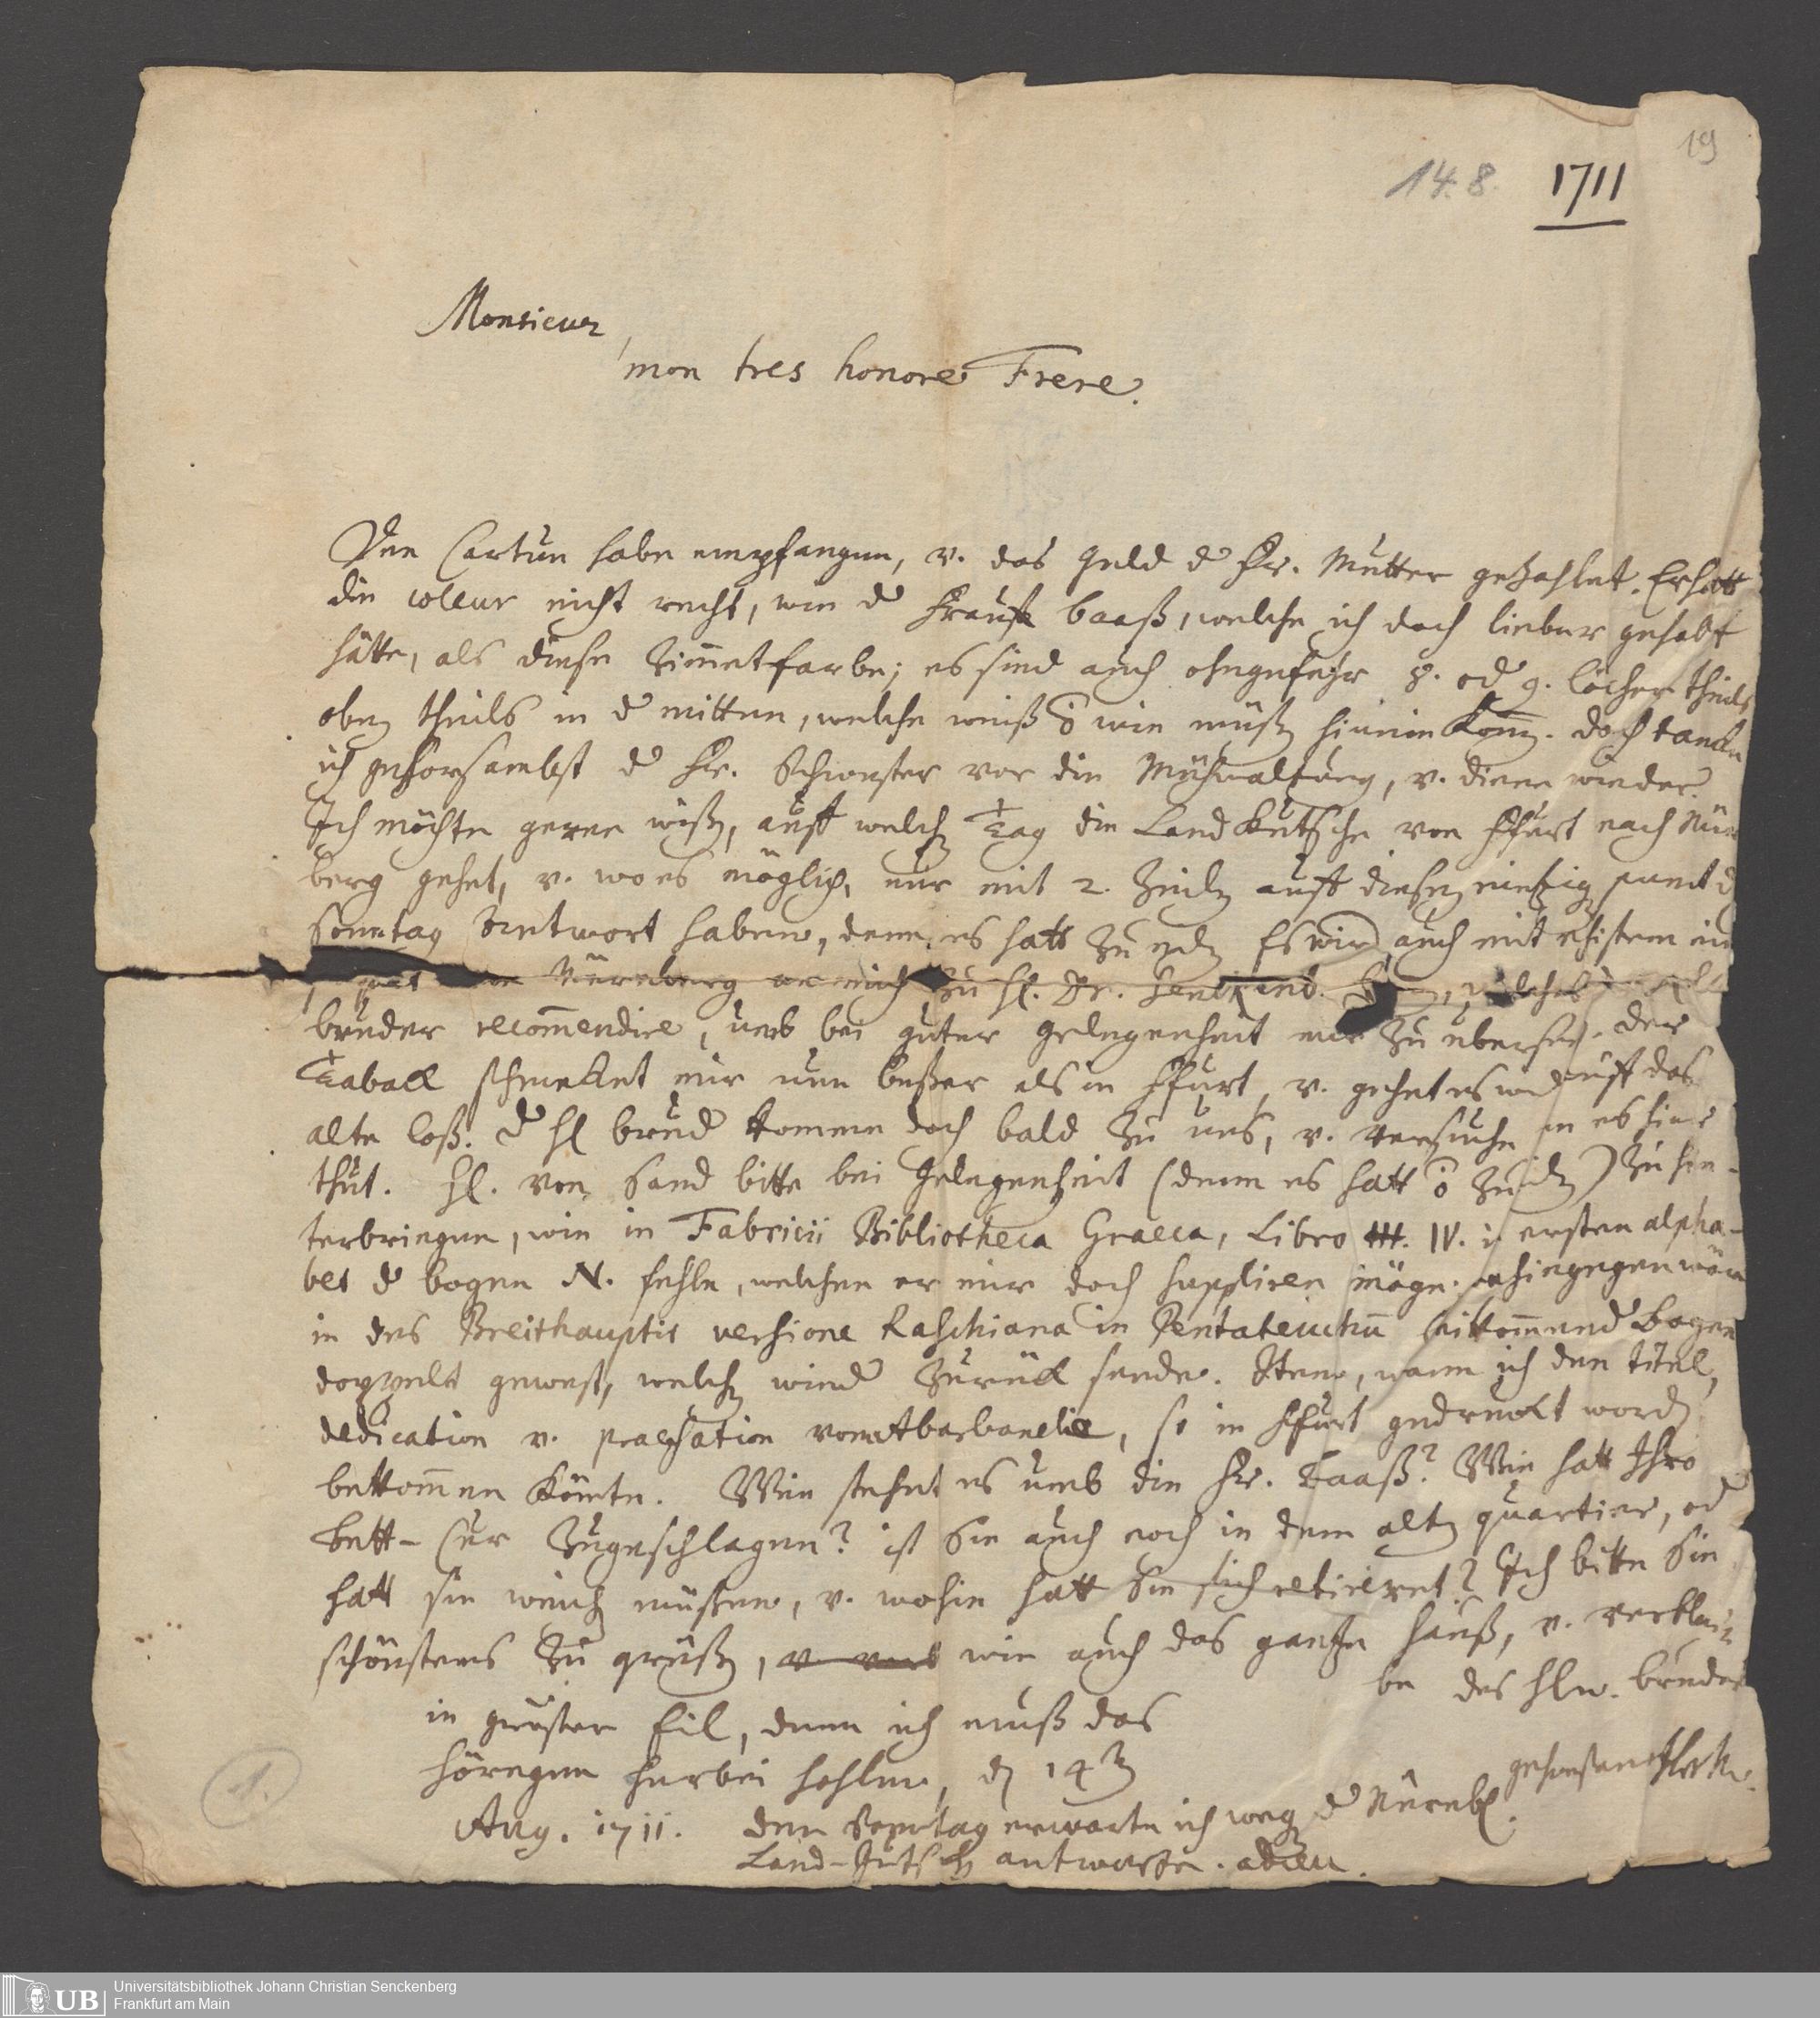 19
14.8. 1711
Monsieur
mon tres honore Frere.
Den Cartun habe empfangen, v. das geld d Fr. Mutter gezahlet. Er hatt
die coleur nicht recht, wie d Frauen baaß, welche ich doch lieber gehabt
hätte, als diese Zimmetfarbe; es sind auch ohngefehr 8. od 9. löcher theils
oben theils in d mitten, welche weiß wie müßen hinein komen. doch tancke
ich gehorsambst d Fr. Schwester vor die Mühwaltung, v. diene wieder.
Ich möchte gerne wißen, auff welchen Tag die Land Kutsche von Ffurt nach Nürn
berg gehet, v. wo es möglich, nur mit 2. Zeilen auff diesen eintzigen punct
Sonntag Antwort haben, denn es hatt zu Es wird auch mit ehistem ein
Nürnberg an mich zu H. Dr. Senckenb. welches
bruder recommendire, umb bei guter gelegenheit mir zu übersen. der
Taback schmecket mir nun beßer als in Ffurt, v. gehet es uff das
alte loß. d H bruder komme doch bald zu uns, v. versuche es hier
thut. H. von Sand bitte bei Gelegenheit (denn es hatt ) zu hin-
terbringen, wie in Fabricii Bibliotheca Graeca, Libro IV. ersten alpha-
bet d bogen N. fehle, welchen er mir doch suppliren möge. hingegen wäre
in des Breithaupts versione Raschiana in Pentateuchum mittommend Bogen
doppelt gewest, welchen wieder zurück sende. Item, wann ich den titel,
dedication v. praefation vom Abarbanelie, so in Ffurt gedruckt worden
bekommen könte. Wie stehet es umb die Fr. Baaß? Wie hatt Ihro
bett-Cur zugeschlagen? ist Sie auch noch in dem alten quartier, od
hatt sie weichen müßen, v. wohin hatt Sie sich retiriret? Ich bitte Sie
schönstens zu grüßen, wie auch das gantze Hauß, v. verblei
be des Hln. bruder
in gröster Eil, denn ich muß das
herbei hohlen, d 14
Aug. 1711. den Sonntag erwarte ich wegen d Nürnb.
Land-Kutschen antworte. adieu.
1.
UB
Universitätsbibliothek Johann Christian Senckenberg
Frankfurt am Main